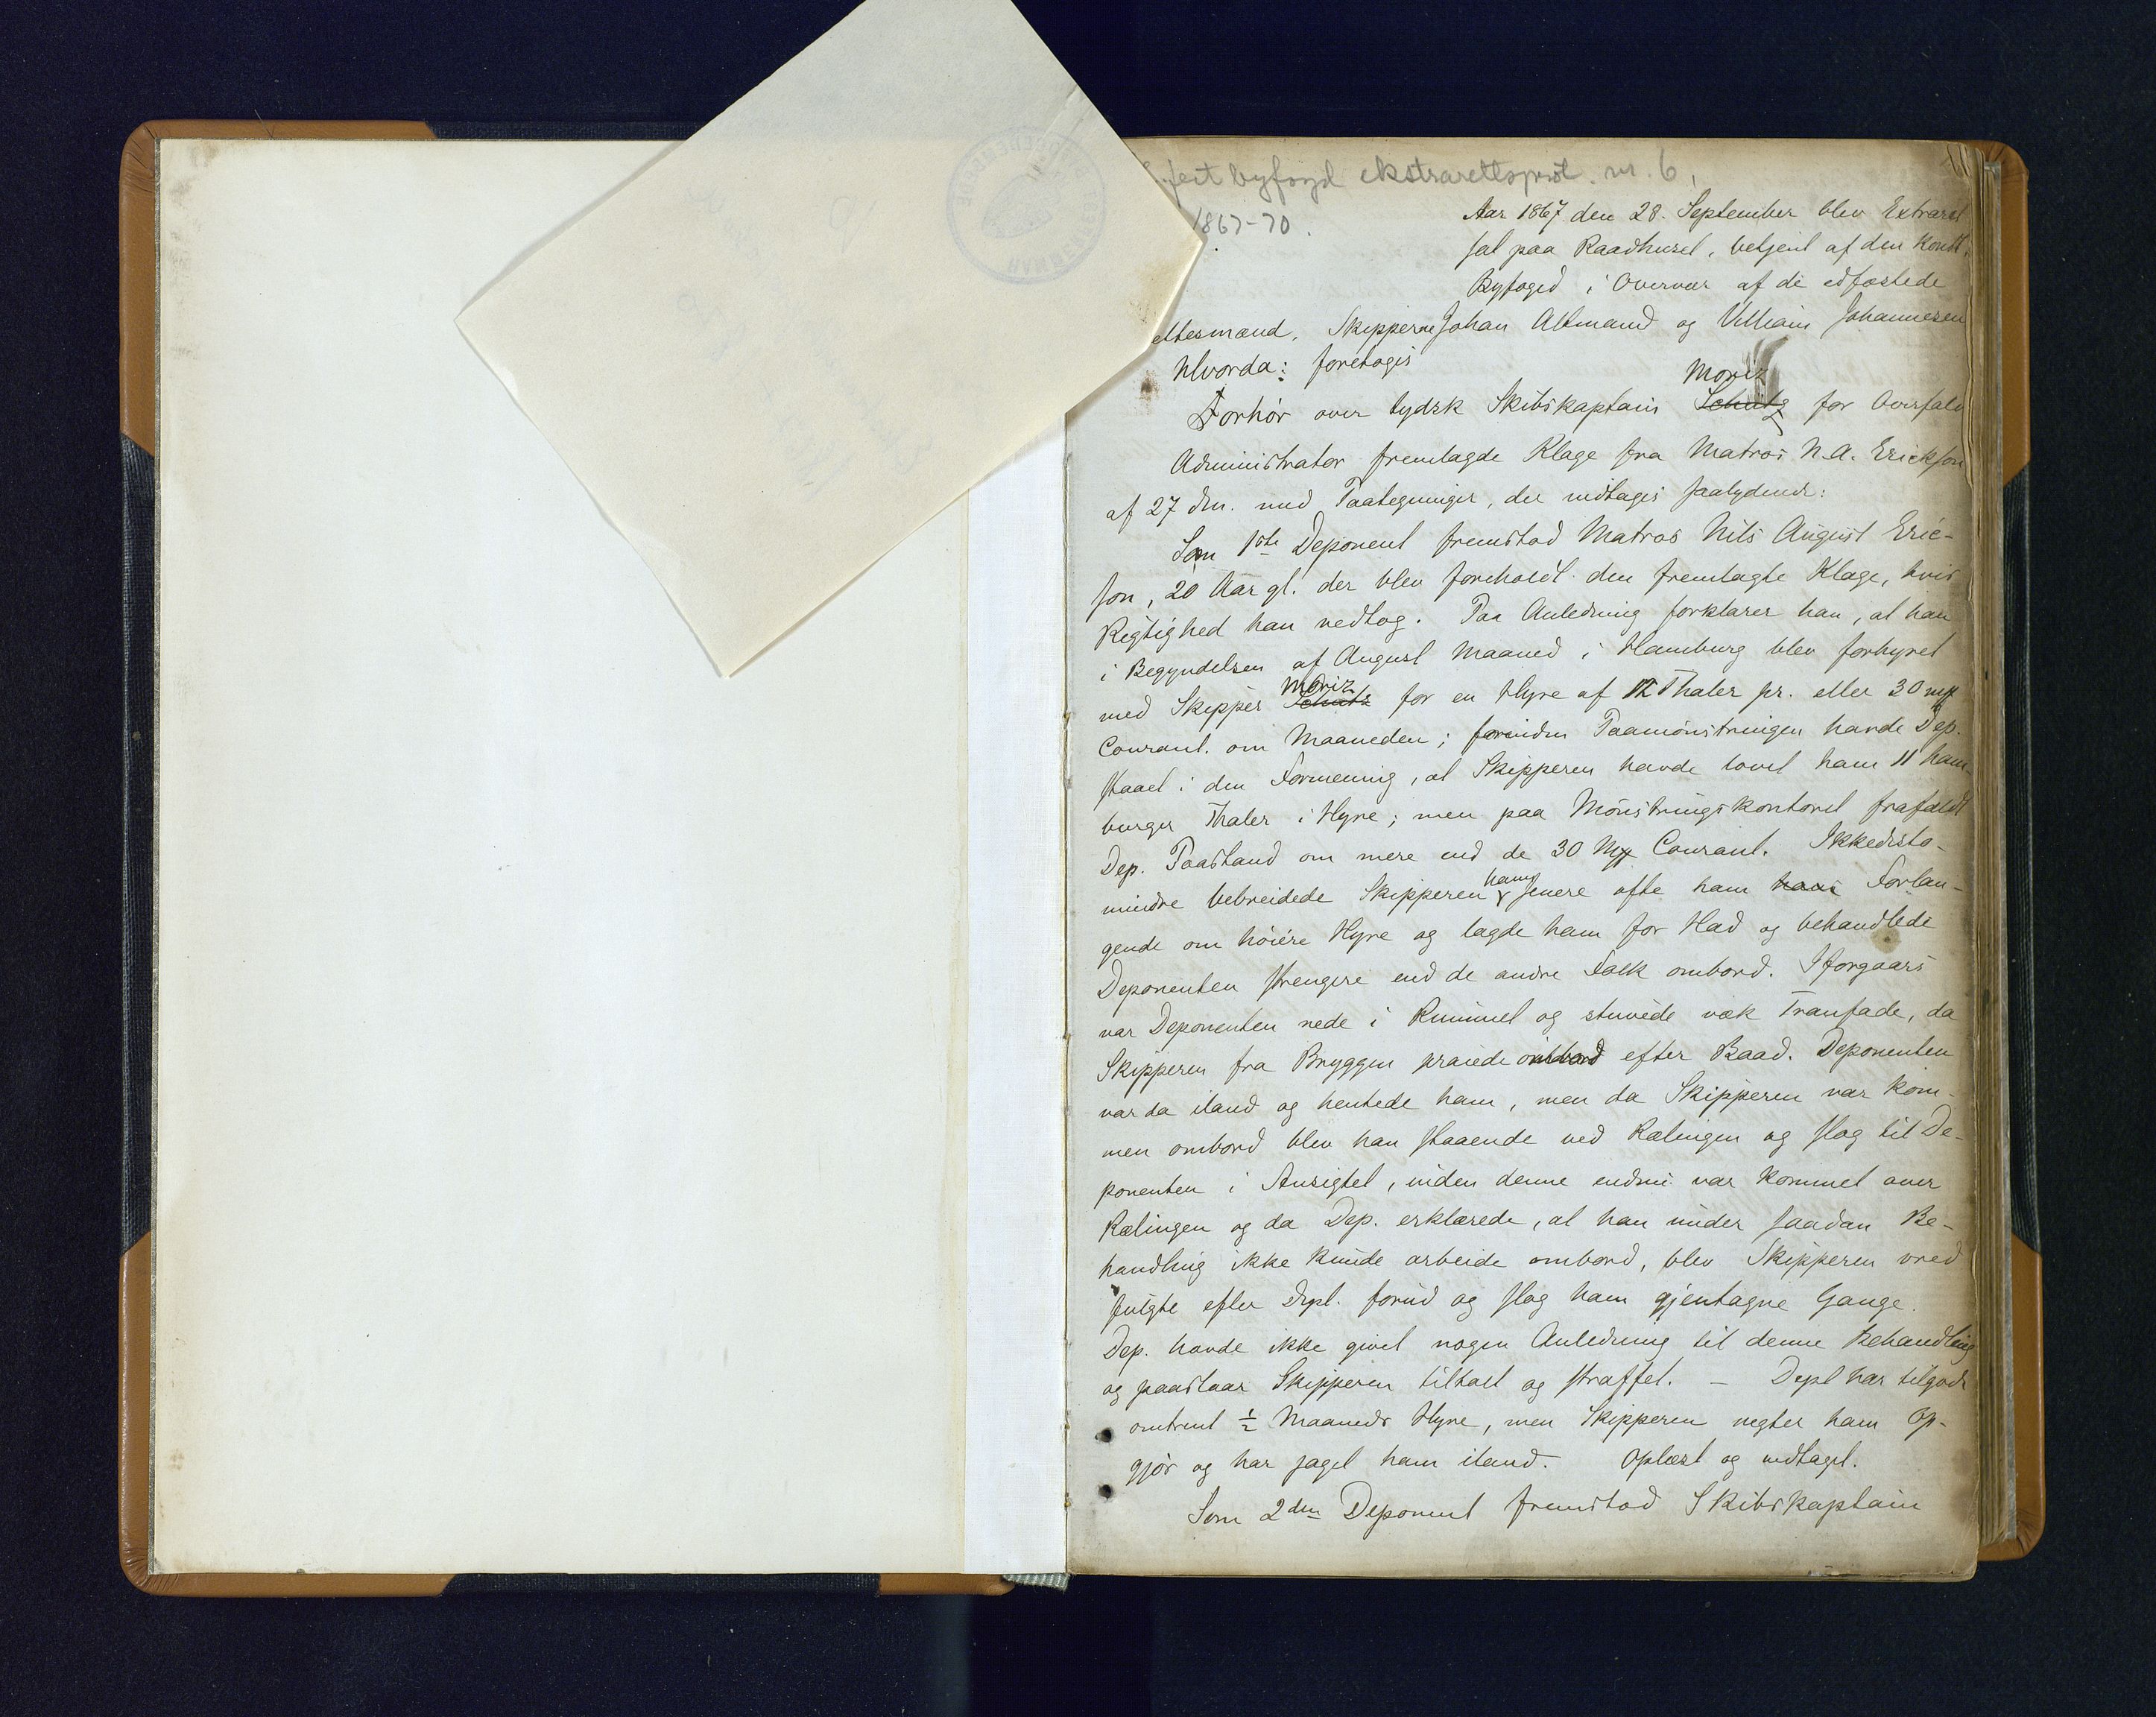 byfogd ekstrarettsprot. nr. 6,
1867-70.
Aar 1867 den 28. September blev Extraret
sat paa Raadhuset, betjent af den Konst.
Byfoged i Overvær af de edfæstede
ettesmænd, Skipperne Johan Altmand og Villiam Johannesen
Hvorda: foretoges
Moriz
Forhör over tydsk Skibskaptain Schütz for Overfald
Administrator fremlagde Klage fra Matros N.A. Erickson
af 27 dm. med Paategninger, der indtages saalydende:
Som 1ste Deponent fremstod Matros Nils August Eric-
son, 20 Aar gl. der blev foreholdt den fremlagte Klage, hvis
Rigtighed han vedtog. Paa Anledning forklarer han, at han
i Begyndelsen af August Maaned i Hamburg blev forhyret
Moriz
med Skipper Schutz for en Hyre af 12 Thaler pr. eller 30 mƒ
Courant. om Maaneden; forinden Paamönstringen havde Dep.
staaet i den Formening, at Skipperen havde lovet ham 11 ham-
burger Thaler i Hyre; men paa Mönstringskontoret frafaldt
Dep. Paastand om mere end de 30 Mƒ Courant. Ikkedesto-
ham
mindre bebreidede Skipperen senere ofte ham hans Forlan-
gende om höiere Hyre og lagde ham for Had og behandlede
Deponenten strengere end de andre Folk ombord. Iforgaars
var Deponenten nede i Rummet og stuvede væk Tranfade, da
Skipperen fra Bryggen praiede ombord efter Baad. Deponenten
var da iland og hentede ham, men da Skipperen var kom-
men ombord blev han staaende ved Rælingen og slog til De-
ponenten i Ansigtet, inden denne endnu var kommet over
Rælingen og da Dep. erklærede, at han under saadan Be-
handling ikke kunde arbeide ombord, blev Skipperen vred
fulgte efter Dept. forud og slog ham gjentagne Gange.
Dep. havde ikke givet nogen Anledning til denne Behandling
og paastaar Skipperen tiltalt og straffet. — Dept har tilgode
omtrent ½ Maaneds Hyre, men Skipperen negter ham Op-
gjör og har jaget ham iland. Oplæst og vedtaget.
Som 2den Deponent fremstod Skibskaptain